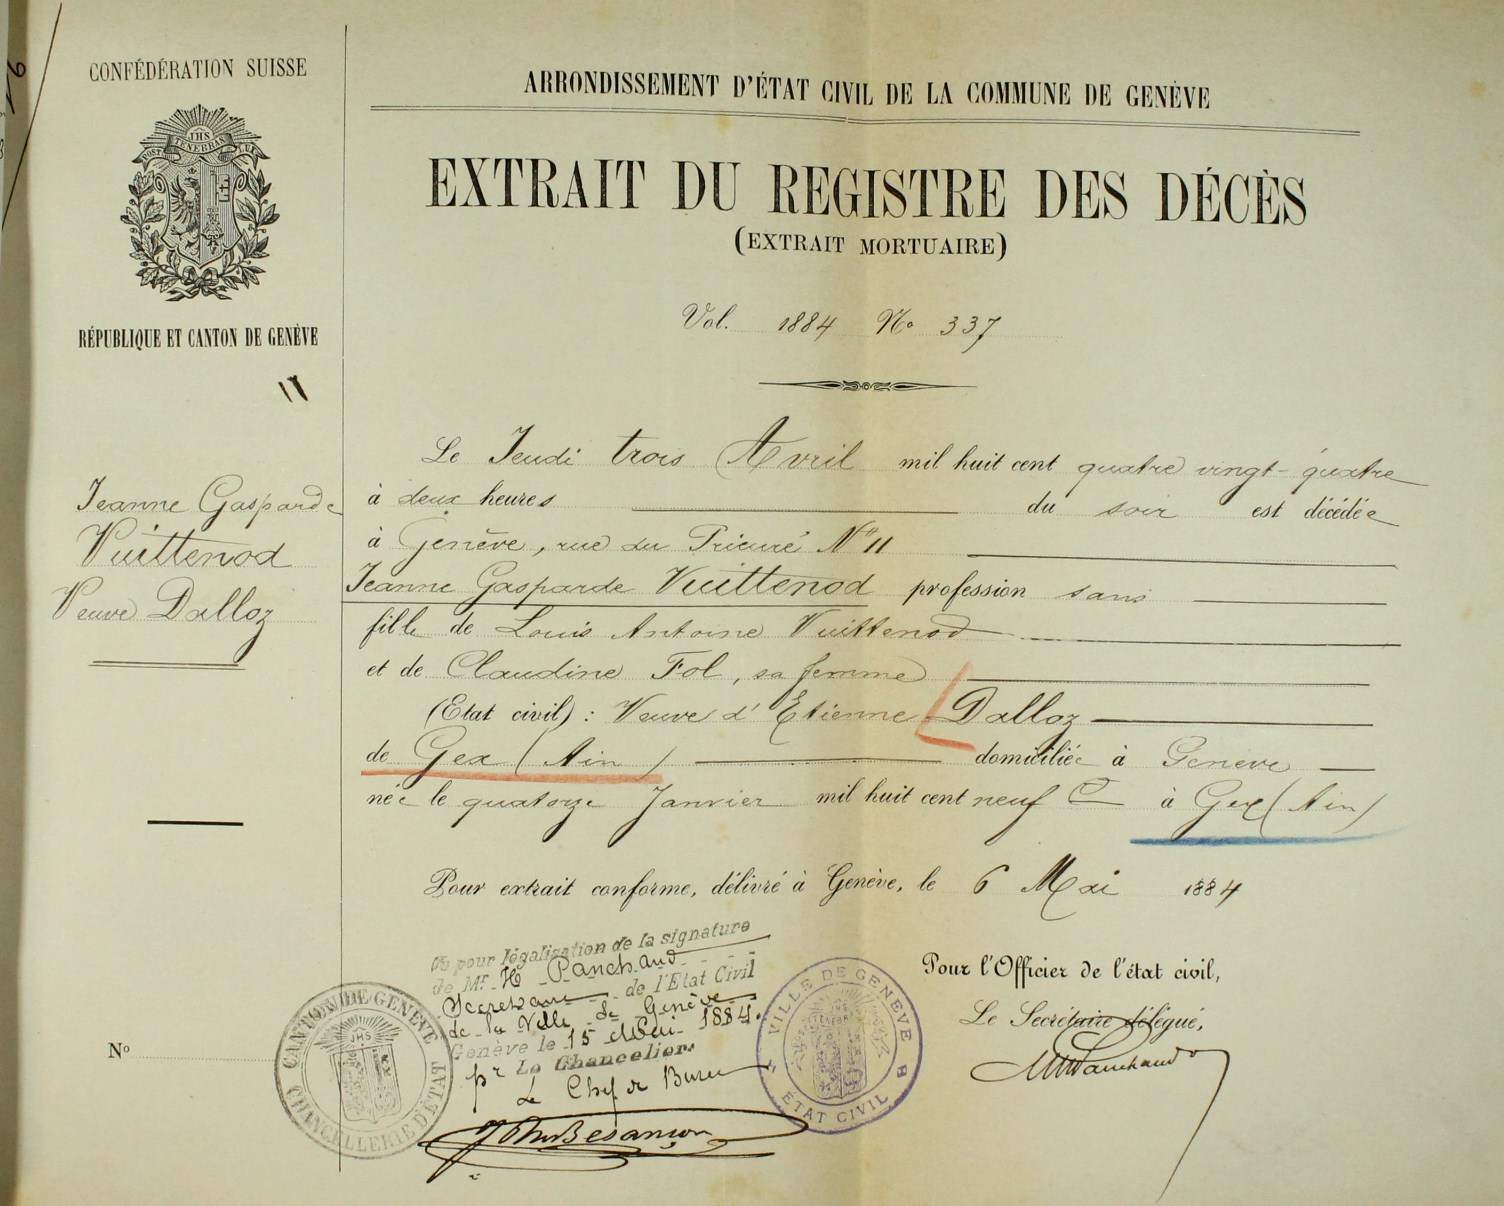 CONFÉDÉRATION SUISSE
JHS
POST TENEBRAS LUX
RÉPUBLIQUE ET CANTON DE GENÈVE
11
Jeanne Gasparde
Vuittenod
Veuve Dalloz
No
ARRONDISSEMENT D'ÉTAT CIVIL DE LA COMMUNE DE GENÈVE
EXTRAIT DU REGISTRE DES DÉCÈS
(EXTRAIT MORTUAIRE)
Vol. 1884 No 337
Le Jeudi trois Avril mil huit cent quatre vingt-quatre
à deux heures du soir est décédée
à Genève, rue du Prieuré No 11
Jeanne Gasparde Vuittenod profession sans
fille de Louis Antoine Vuittenod
et de Claudine Fol, sa femme
(Etat civil) : Veuve d'Etienne Dalloz
de Gex (Ain) domiciliée à Genève
née le quatorze Janvier mil huit cent neuf à Gex (Ain)
Pour extrait conforme, délivré à Genève, le 6 Mai 1884
Pour l'Officier de l'état civil,
Le Secrétaire délégué,
Panchaud
Vu pour légalisation de la signature
de Mr. H Panchaud
Secrétaire de l'Etat Civil
de la Ville de Genève
Genève le 15 Mai 1884.
pr Le Chancelier
Le Chef de Bureau
Besançon
CANTON DE GENÈVE
CHANCELLERIE D'ÉTAT
VILLE DE GENÈVE
ÉTAT CIVIL
B